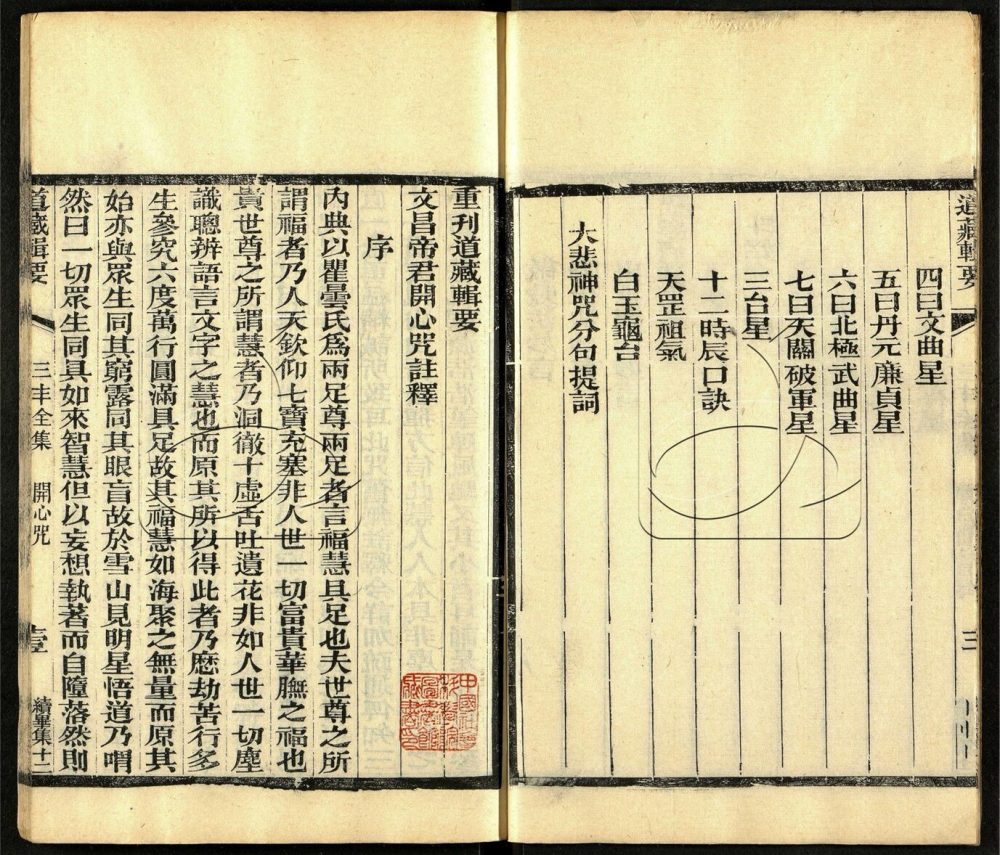 道藏輯要
三
四曰文曲星
五曰丹元廉貞星
六曰北極武曲星
七曰天關破軍星
三台星
十二時辰口訣
天罡祖氣
白玉龜台
大悲神咒分句提詞
重刊道藏輯要
文昌帝君開心咒註釋
序
內典以瞿曇氏爲兩足尊兩足者言福慧具足也夫世尊之所
謂福者乃人天欽仰七寶充塞非人世一切富貴華膴之福也
貴世尊之所謂慧者乃洞徹十虛舌吐遺花非如人世一切塵
識聰辨語言文字之慧也而原其所以得此者乃歷劫苦行多
生參究六度萬行圓滿具足故其福慧如海聚之無量而原其
始亦與眾生同其窮露同其眼盲故於雪山見明星悟道乃喟
然曰一切眾生同具如來智慧但以妄想執著而自隨落然則
道藏輯要 三丰全集 開心咒 壹 續畢集十二